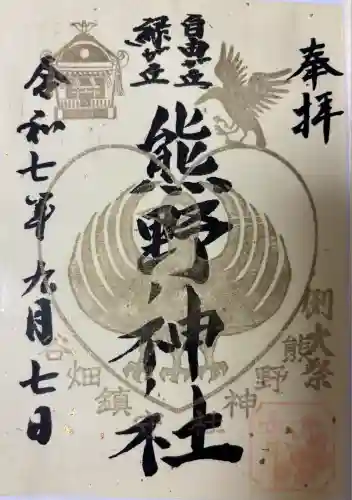 奉拝
自由が丘
緑が丘
熊野神社
令和七年九月七日
例大祭
熊野神社
谷畑鎮守